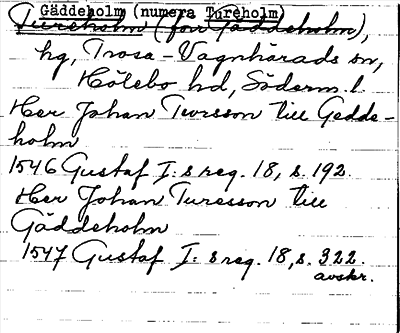 Gäddeholm (numera Tureholm)
Tureholm (förr Gäddeholm),
hg, Trosa-Vagnhärads sn,
Hölebo hd, Söderm. l.
Her Johan Twrsson till Gedde-
holm
1546 Gustaf I:s reg. 18, s. 192.
Her Johan Turesson till
Gäddeholm
1547 Gustaf I:s reg. 18, s. 322.
avskr.